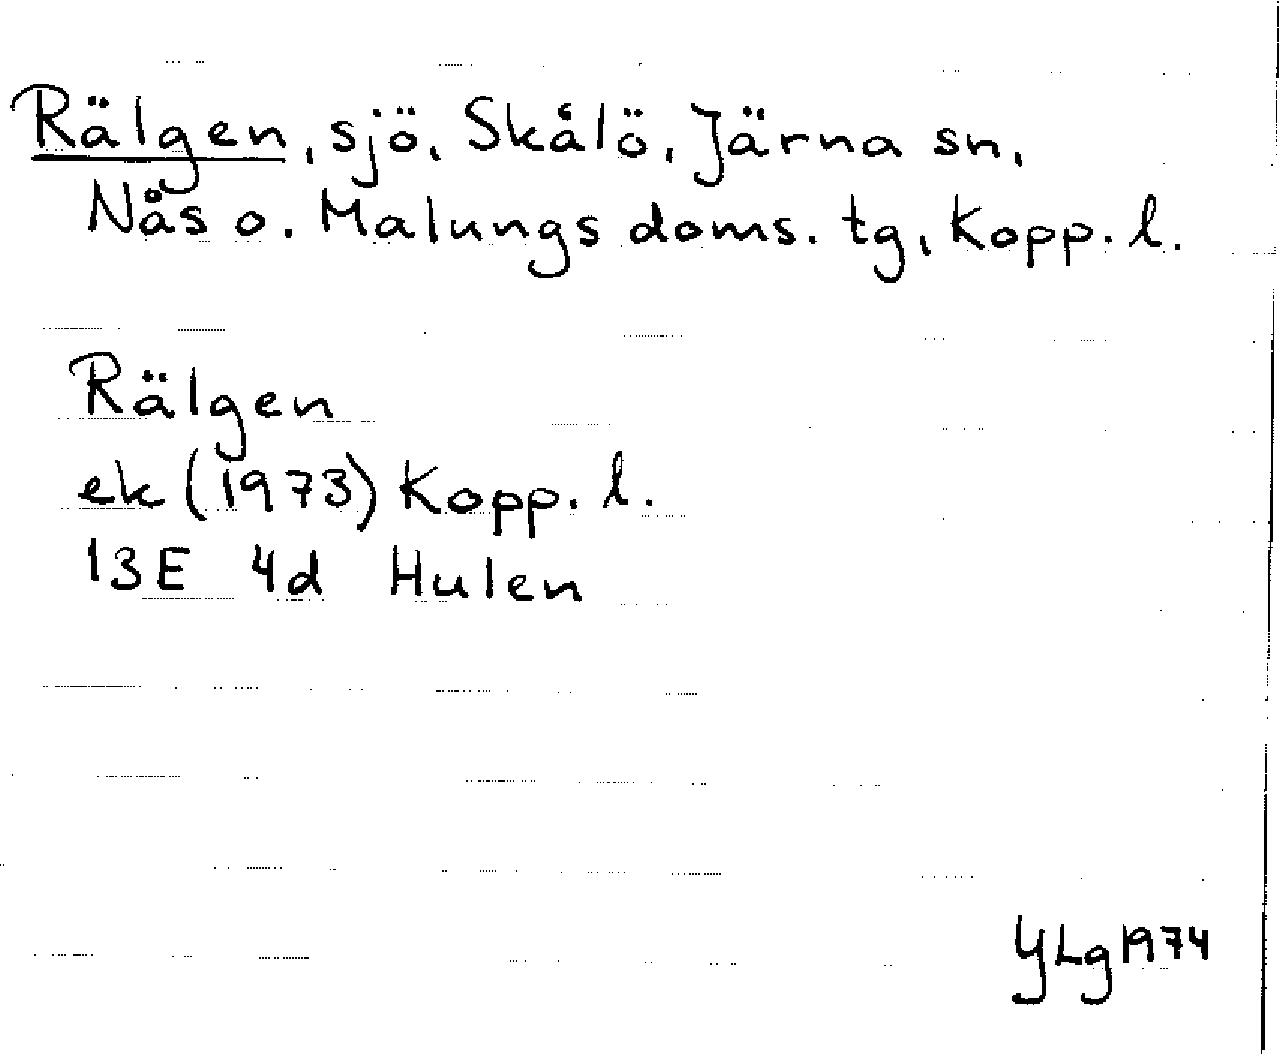 Rälgen, sjö, Skålö, Järna sn,
Nås o. Malungs doms. tg, Kopp. l.
Rälgen
ek (1973) Kopp. l.
13E 4d Hulen
YLg 1974